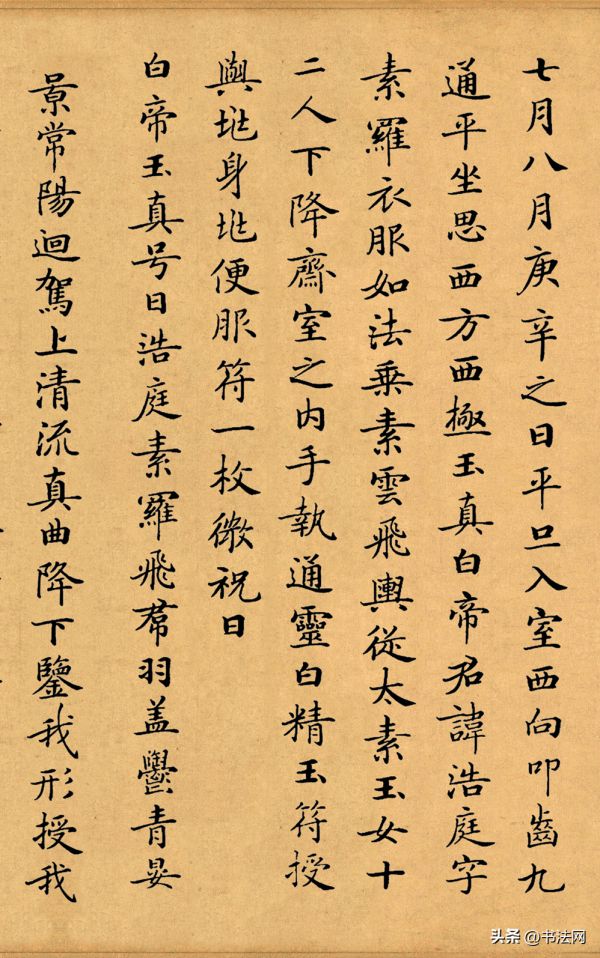 七月八月庚辛之日平旦入室西向叩齒九
通平坐思西方西極玉真白帝君諱浩庭字
素羅衣服如法乗素雲飛輿從太素玉女十
二人下降齋室之内手執通靈白精玉符授
與兆身兆便服符一枚微祝曰
白帝玉真号曰浩庭素羅飛帬羽盖鬱青晏
景常陽迴駕上清流真曲降下鑒我形授我
头条 @书法网